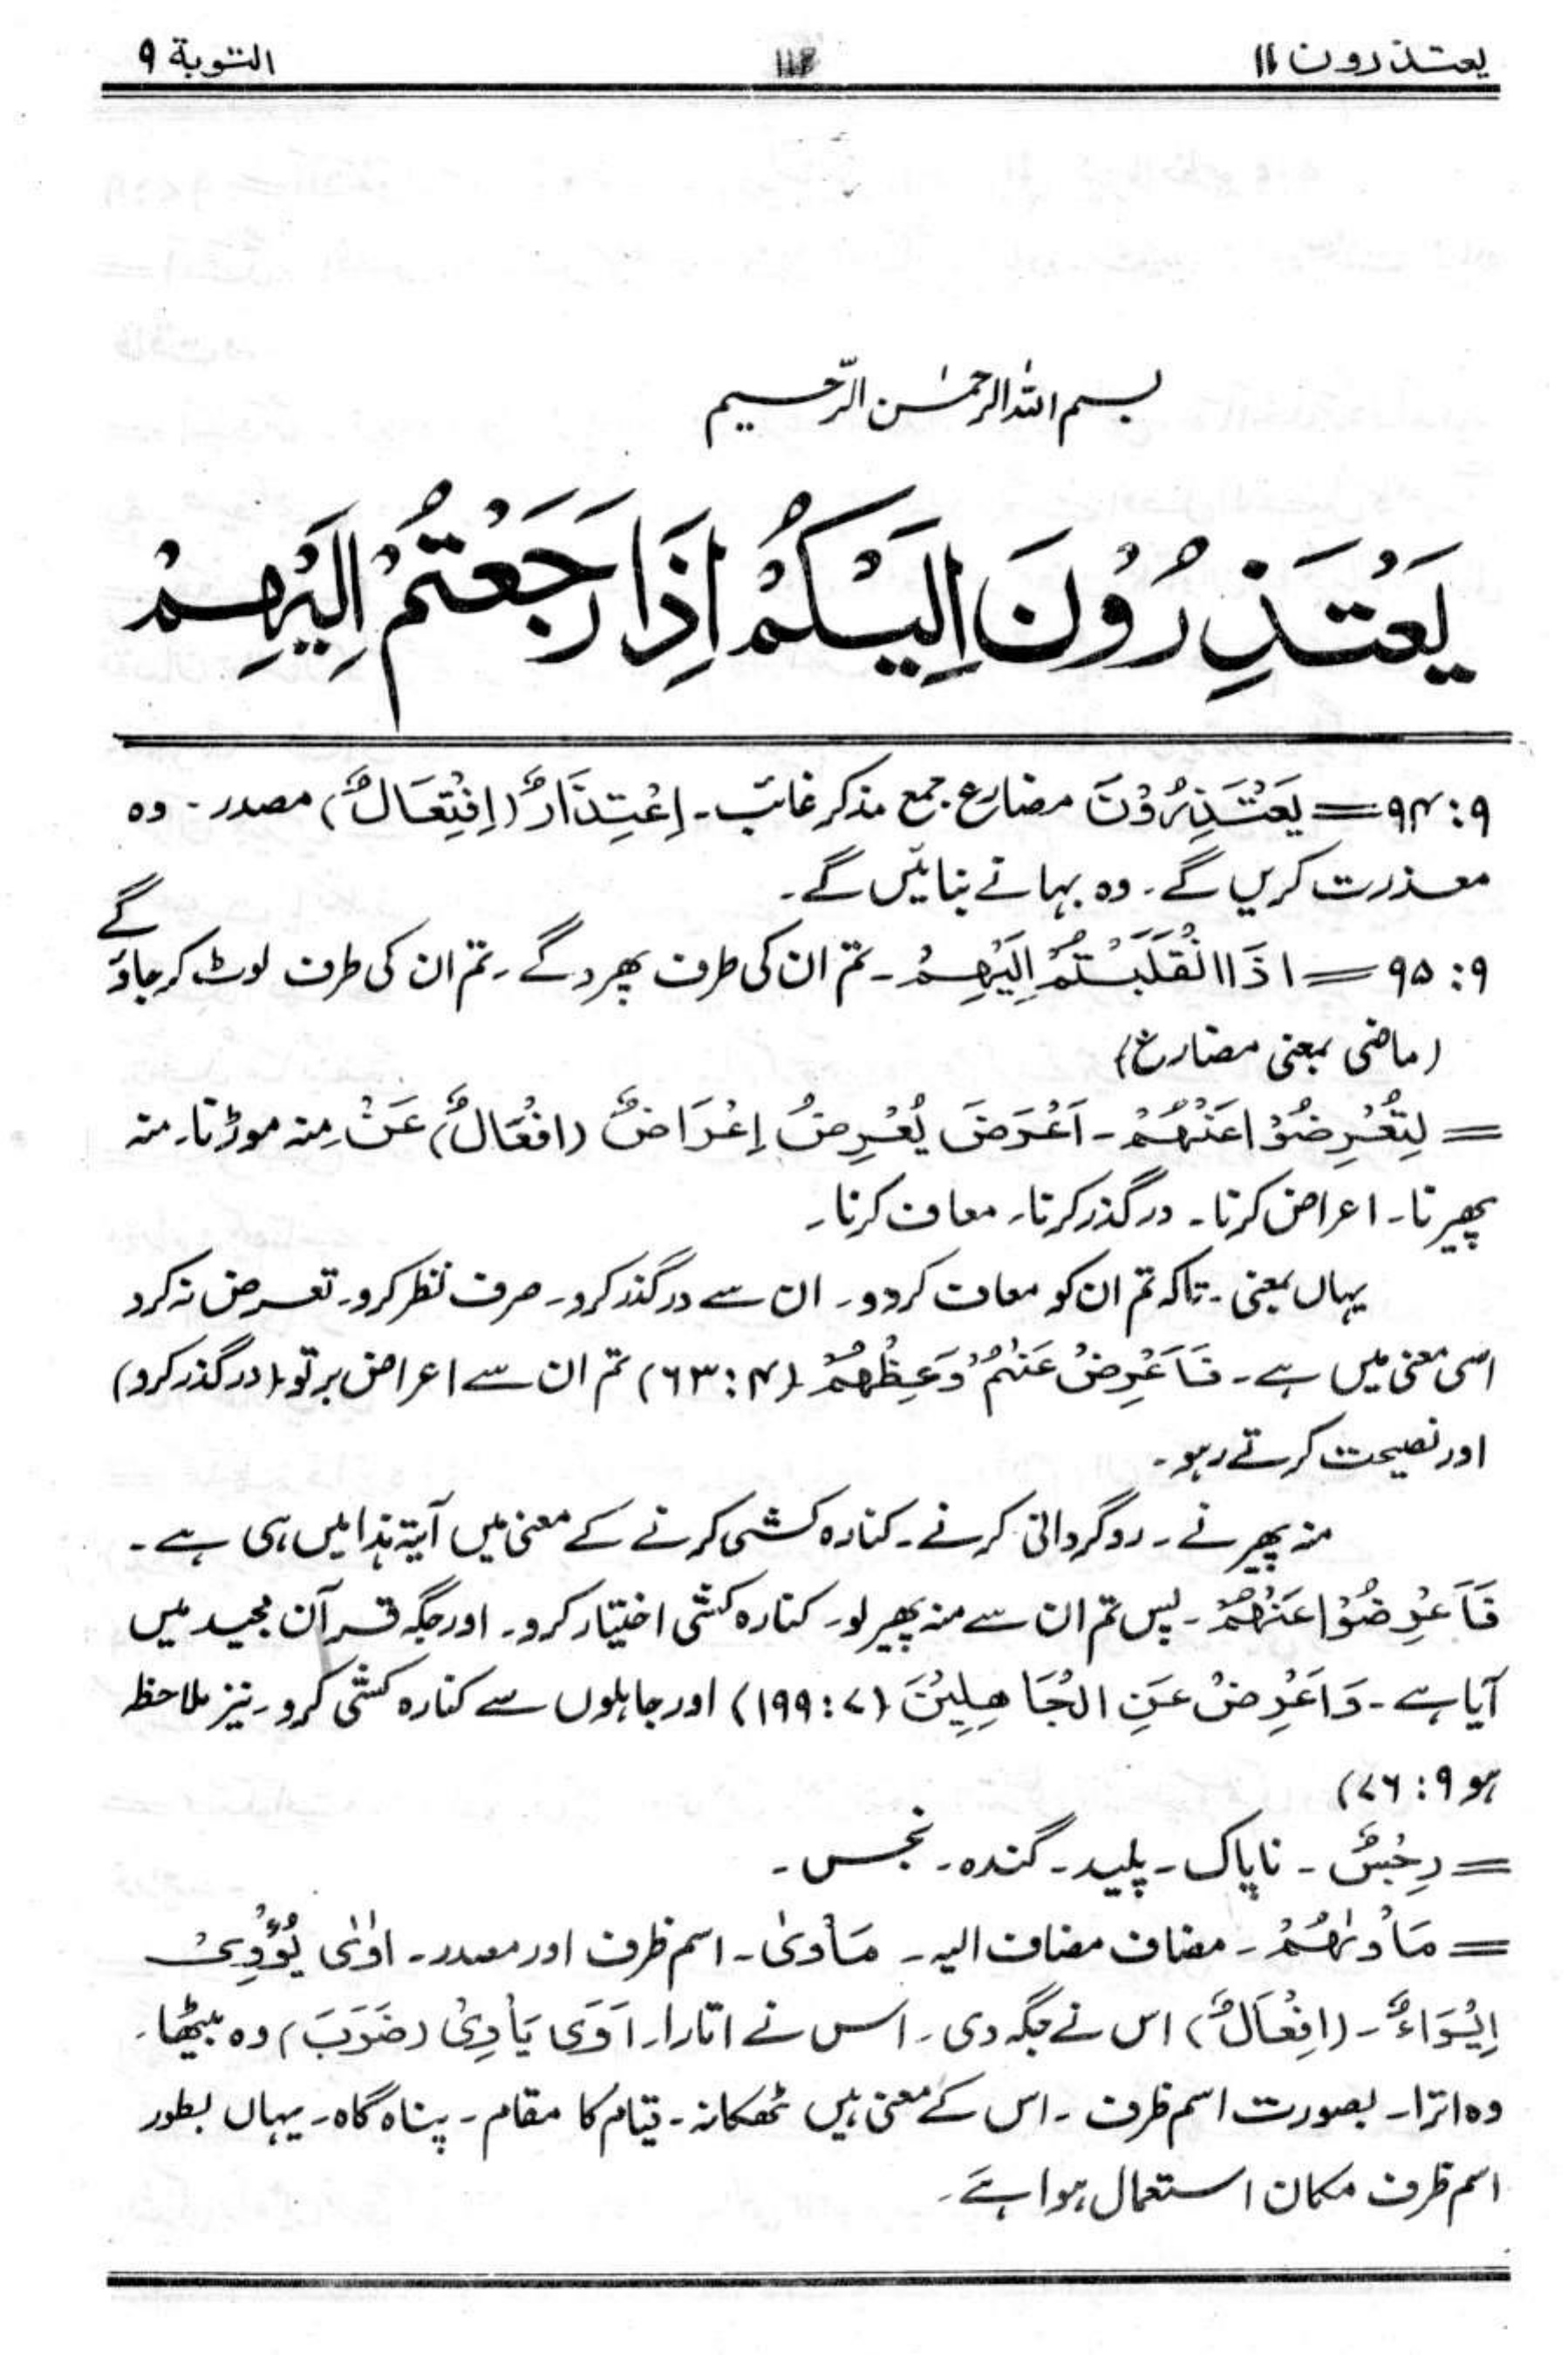 یعتذرون ۱۱
التوبة ۹
بسم الله الرحمٰن الرّحیم
یَعْتَذِرُوْنَ اِلَیْکُمْ اِذَا رَجَعْتُمْ اِلَیْهِمْ
۹: ۹۴ = یَعْتَذِرُوْنَ مضارع جمع مذکر غائب۔ اِعْتِذَارٌ (اِفْتِعَالٌ) مصدر۔ وہ
معذرت کریں گے۔ وہ بہانے بنائیں گے۔
۹: ۹۵ = اذَا انْقَلَبْتُمْ اِلَیْهِمْ۔ تم ان کی طرف پھرو گے۔ تم ان کی طرف لوٹ کر جاؤ گے
(ماضی بمعنی مضارع)
= لِتُعْرِضُوْا عَنْهُمْ۔ اَعْرَضَ یُعْرِضُ اِعْرَاضٌ (افْعَالٌ) عَنْ۔ منہ موڑنا۔ منہ
پھیرنا۔ اعراض کرنا۔ درگذر کرنا۔ معاف کرنا۔
یہاں بمعنی۔ تاکہ تم ان کو معاف کردو۔ ان سے درگذر کرو۔ صرف نظر کرو۔ تعرض نہ کرو
اسی معنی میں ہے۔ فَاَعْرِضْ عَنْهُمْ وَعِظْهُمْ (۴: ۶۳) تم ان سے اعراض برتو۔ (درگذر کرو)
اور نصیحت کرتے رہو۔
منہ پھیرنے۔ روگردانی کرنے۔ کنارہ کشی کرنے کے معنی میں آیۃ ہذا میں ہی ہے۔
فَاَعْرِضُوْا عَنْهُمْ۔ پس تم ان سے منہ پھیر لو۔ کنارہ کشی اختیار کرو۔ اور جگہ قرآن مجید میں
آیا ہے۔ وَاَعْرِضْ عَنِ الْجَاهِلِیْنَ (۷: ۱۹۹) اور جاہلوں سے کنارہ کشی کرو۔ نیز ملاحظہ
ہو ۹: ۷۶)
= رِجْسٌ۔ ناپاک۔ پلید۔ گندہ۔ نجس۔
= مَاْوٰىهُمْ۔ مضاف مضاف الیہ۔ مَاْوٰی۔ اسم ظرف اور مصدر۔ اوٰی یُؤْوِیْ
اِیْوَاءٌ۔ (اِفْعَالٌ) اس نے جگہ دی۔ اس نے اتارا۔ اَوَی یَاْوِیْ (ضَرَبَ) وہ بیٹھا۔
وہ اترا۔ بصورت اسم ظرف۔ اس کے معنی ہیں ٹھکانہ۔ قیام کا مقام۔ پناہ گاہ۔ یہاں بطور
اسم ظرف مکان استعمال ہوا ہے۔